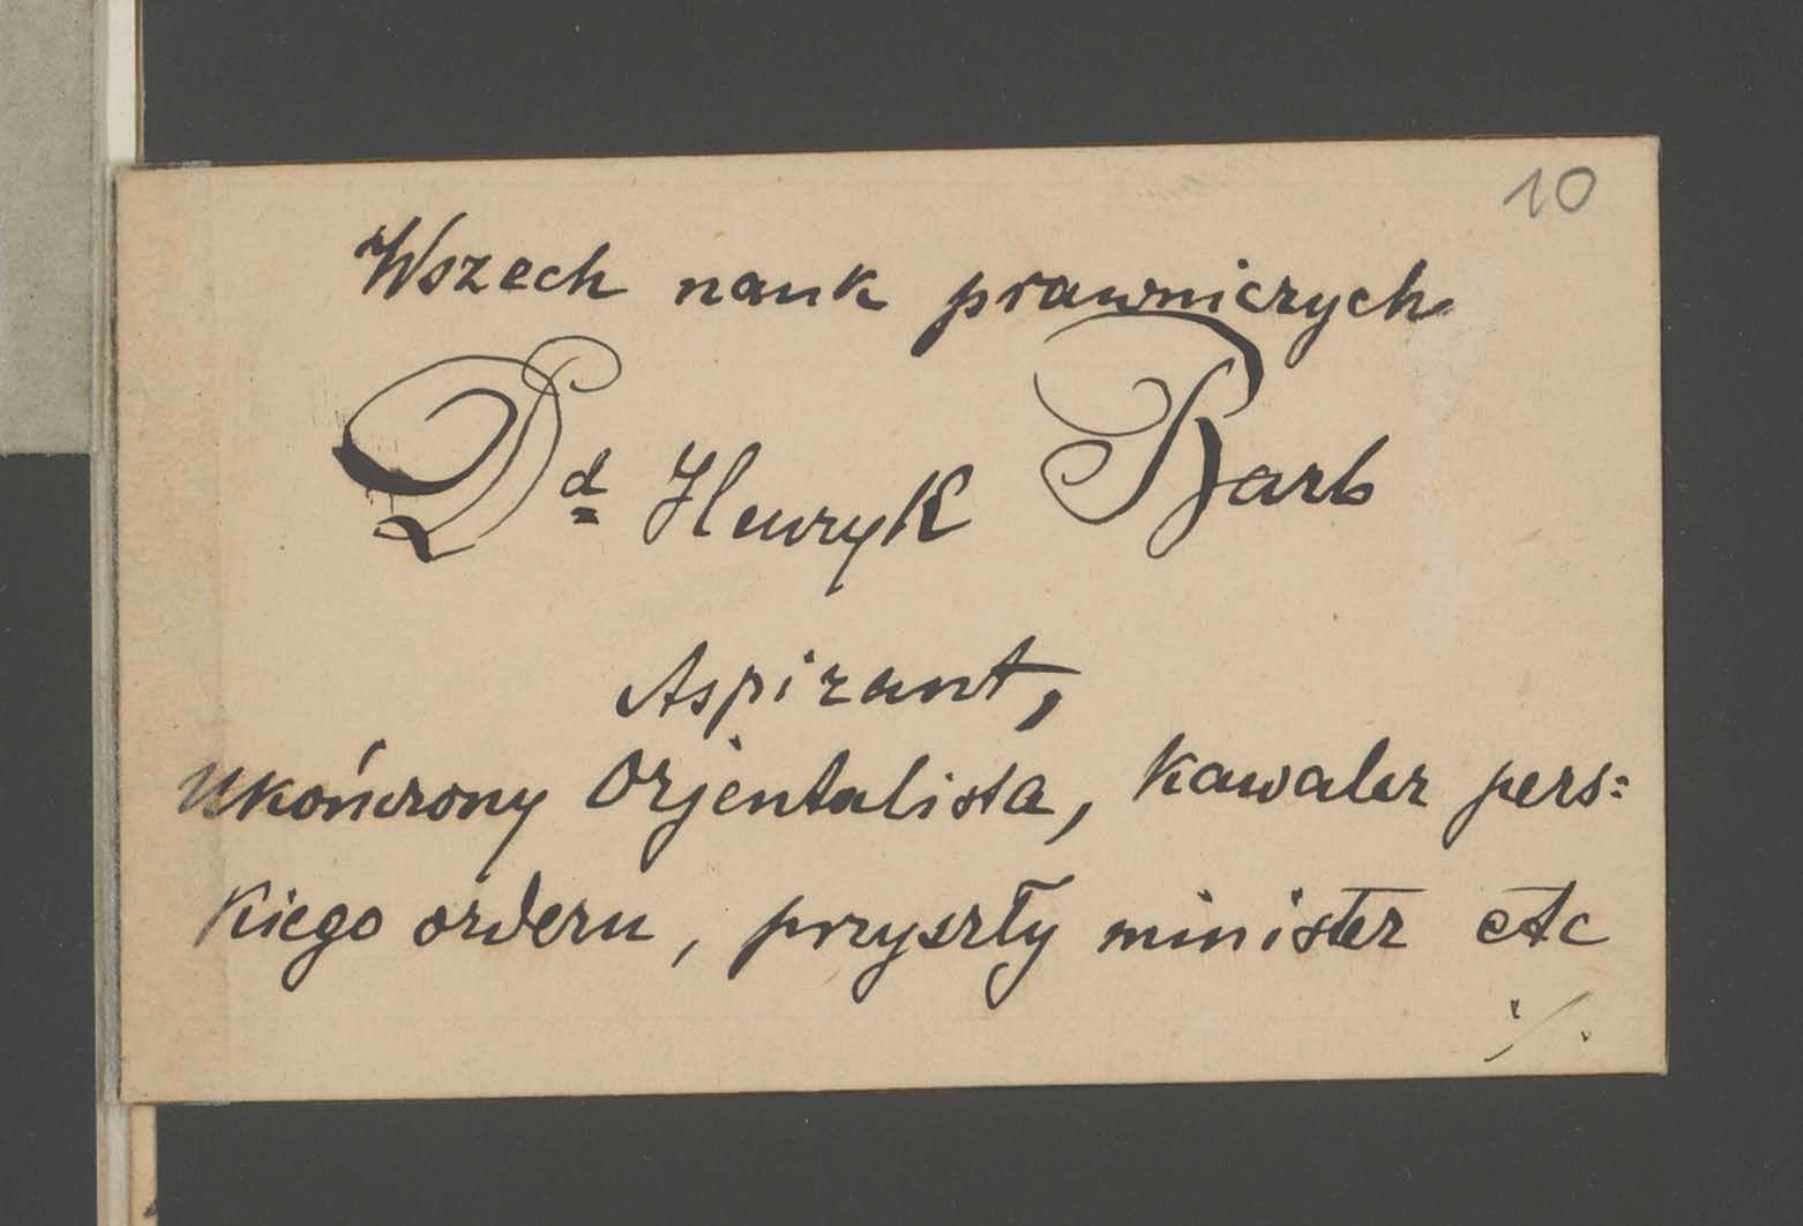 10
Wszech nauk prawniczych
Dd Henryk Barb
Aspirant,
ukończony Orjentalista, kawaler pers:
kiego orderu, przyszły minister etc
./.